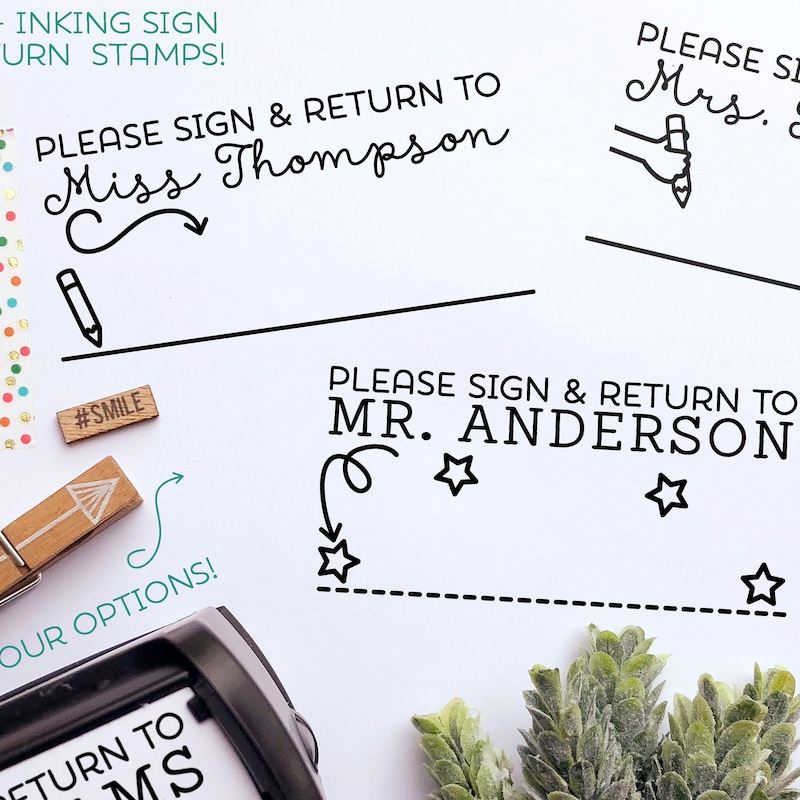 INKING SIGN
STAMPS!
PLEASE SIGN & RETURN TO
Miss Thompson
PLEASE
Mrs.
#SMILE
PLEASE SIGN & RETURN TO
MR. ANDERSON
OPTIONS!
RETURN TO